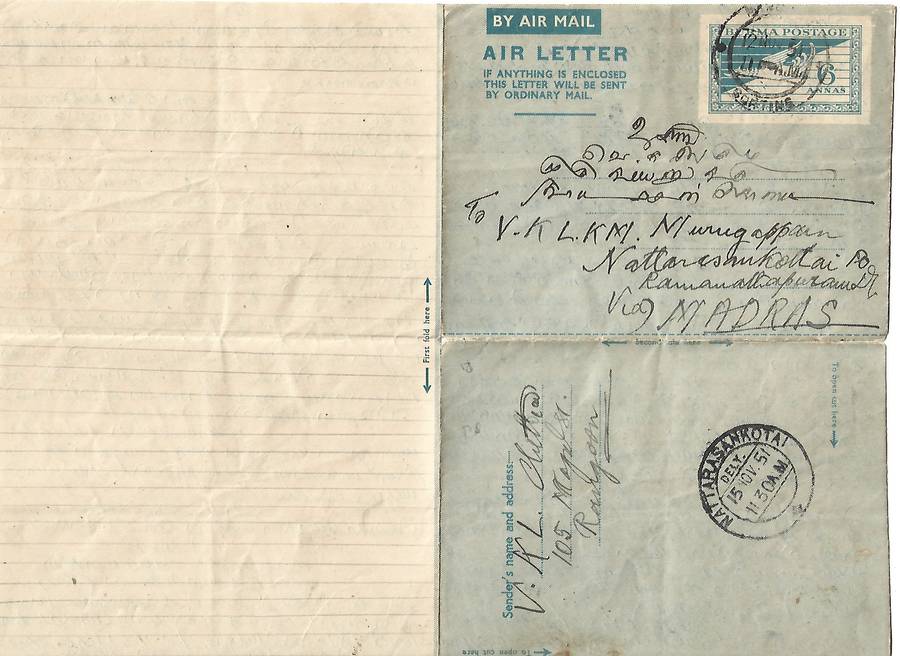 BY AIR MAIL
AIR LETTER
IF ANYTHING IS ENCLOSED
THIS LETTER WILL BE SENT
BY ORDINARY MAIL.
BURMA POSTAGE
6
ANNAS
To
V.K L.KM. Murugappan
Nattarasankottai PO
Ramanathapuram Dt
Via) MADRAS
First fold here
Second fold here
To open cut here
Sender's name and address:—
V. K L. Chettiar
105 Mogul St.
Rangoon
NATTARASANKOTAI
DELY.
15 NOV. 51
11.30 A.M
To open cut here